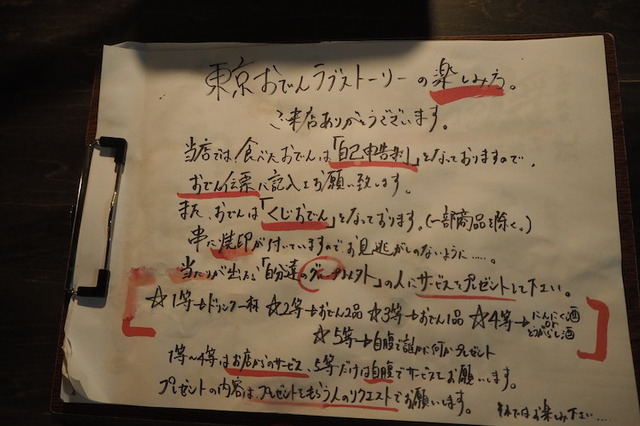 東京おでんラブストーリーの楽しみ方。
ご来店ありがとうございます。
当店では食べたおでんは「自己申告制」となっておりますので、
おでん伝票に記入をお願い致します。
また、おでんは「くじおでん」となっております。(一部商品を除く。)
串に焼印が付いていますのでお見逃がしのないように……。
当たりが出たら「自分達の の人にサービスをプレゼントして下さい。
☆1等→ドリンク一杯 ☆2等→おでん2品 ☆3等→おでん1品 ☆4等→にんにく酒 or とうがらし酒
☆5等→自腹で誰かに何かプレゼント
1等〜4等はお店からのサービス、5等だけは自腹でサービスをお願いします。
プレゼントの内容はプレゼントをもらう人のリクエストでお願いします。
それではお楽しみ下さい….